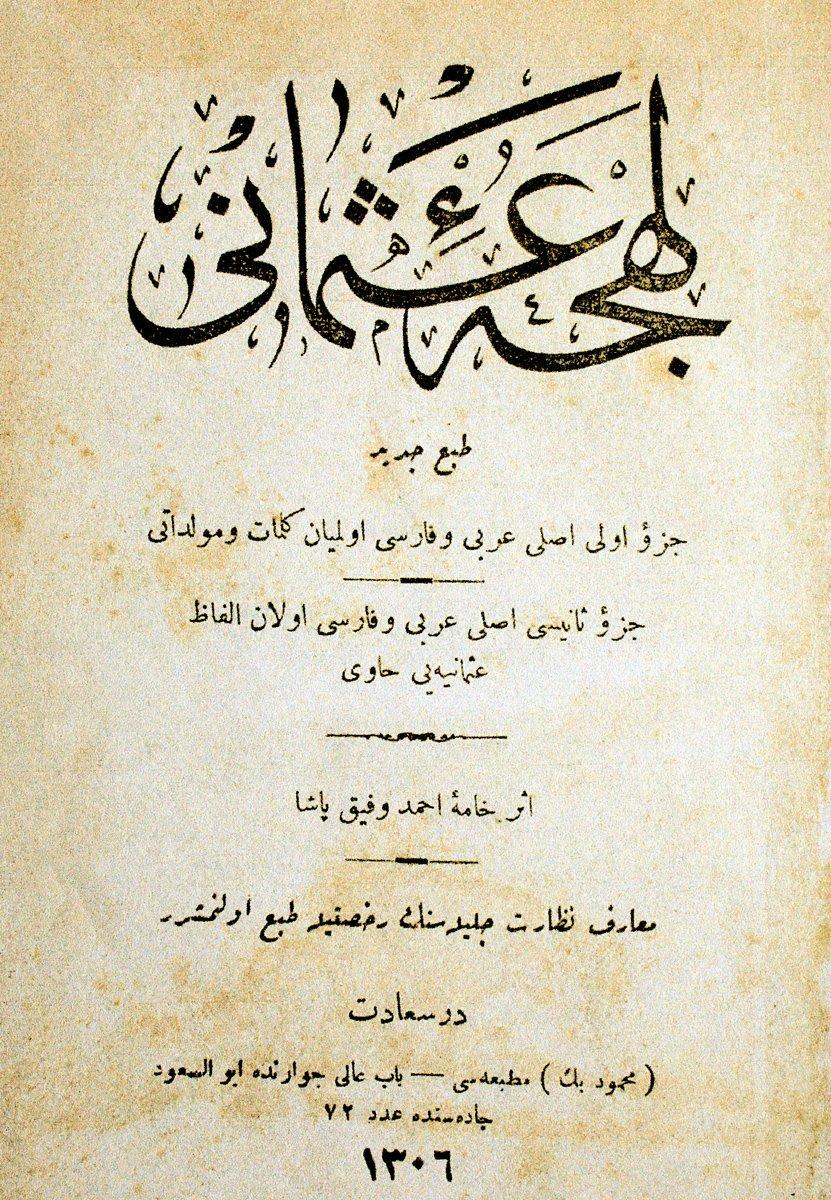 لهجۀ عثمانی
طبع جدید
جزؤ اولی اصلی عربی وفارسی اولمیان کلمات ومولداتی
جزؤ ثانیسی اصلی عربی وفارسی اولان الفاظ
عثمانیه‌یی حاوی
اثر خامۀ احمد وفیق پاشا
معارف نظارت جلیله‌سنك رخصتیله طبع اولنمشدر
در سعادت
( محمود بك ) مطبعه‌سی — باب عالی جوارنده ابو السعود
جاده‌سنده عدد ٧٢
١٣٠٦